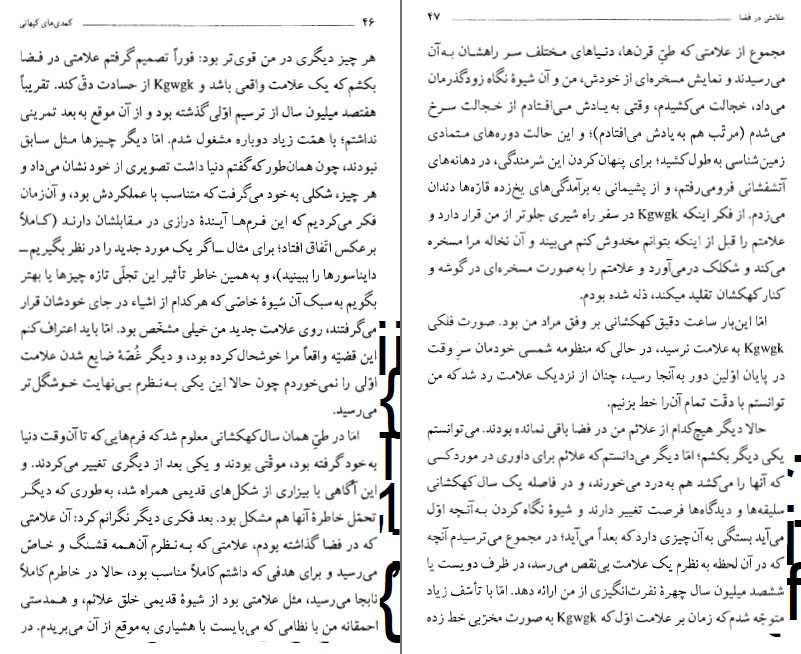 ۴۶ کمدی‌های کیهانی
هر چیز دیگری در من قوی‌تر بود: فوراً تصمیم گرفتم علامتی در فضا
بکشم که یک علامت واقعی باشد و Kgwgk از حسادت دق کند. تقریباً
هفتصد میلیون سال از ترسیم اوّلی گذشته بود و از آن موقع به بعد تمرینی
نداشتم؛ با همّت زیاد دوباره مشغول شدم. امّا دیگر چیزها مثل سابق
نبودند، چون همان‌طور که گفتم دنیا داشت تصویری از خود نشان می‌داد و
هر چیز، شکلی به خود می‌گرفت که متناسب با عملکردش بود، و آن‌زمان
فکر می‌کردیم که این فرم‌ها آیندهٔ درازی در مقابلشان دارند (کاملاً
برعکس اتّفاق افتاد؛ برای مثال ــاگر یک مورد جدید را در نظر بگیریم‌ــ
دایناسورها را ببینید)، و به همین خاطر تأثیر این تجلّی تازه چیزها یا بهتر
بگویم به سبک آن شیوهٔ خاصّی که هرکدام از اشیاء در جای خودشان قرار
می‌گرفتند، روی علامت جدید من خیلی مشخّص بود. امّا باید اعتراف کنم
این قضیّه واقعاً مرا خوشحال کرده بود، و دیگر غُصّهٔ ضایع شدن علامت
اوّلی را نمی‌خوردم چون حالا این یکی به نظرم بی‌نهایت خوشگل‌تر
می‌رسید.
امّا در طیّ همان سال کهکشانی معلوم شد که فرم‌هایی که تا آن‌وقت دنیا
به خود گرفته بود، موقّتی بودند و یکی بعد از دیگری تغییر می‌کردند. و
این آگاهی با بیزاری از شکل‌های قدیمی همراه شد، به طوری که دیگر
تحمّل خاطرهٔ آنها هم مشکل بود. بعد فکری دیگر نگرانم کرد: آن علامتی
که در فضا گذاشته بودم، علامتی که به نظرم آن‌همه قشنگ و خاصّ
می‌رسید و برای هدفی که داشتم کاملاً مناسب بود، حالا در خاطرم کاملاً
نابجا می‌رسید، مثل علامتی بود از شیوهٔ قدیمی خلق علائم، و همدستی
احمقانه من با نظامی که می‌بایست با هشیاری به موقع از آن می‌بریدم. در
علامتی در فضا ۴۷
مجموع از علامتی که طیّ قرن‌ها، دنیاهای مختلف سر راهشان به آن
می‌رسیدند و نمایش مسخره‌ای از خودش، من و آن شیوهٔ نگاه زودگذرمان
می‌داد، خجالت می‌کشیدم، وقتی به یادش می‌افتادم از خجالت سرخ
می‌شدم (مرتّب هم به یادش می‌افتادم)؛ و این حالت دوره‌های متمادی
زمین‌شناسی به طول کشید؛ برای پنهان کردن این شرمندگی، در دهانه‌های
آتشفشانی فرو می‌رفتم، و از پشیمانی به برآمدگی‌های یخ‌زده قارّه‌ها دندان
می‌زدم. از فکر اینکه Kgwgk در سفر راه شیری جلوتر از من قرار دارد و
علامتم را قبل از اینکه بتوانم مخدوش کنم می‌بیند و آن نخاله مرا مسخره
می‌کند و شکلک درمی‌آورد و علامتم را به صورت مسخره‌ای در گوشه و
کنار کهکشان تقلید میکند، ذله شده بودم.
امّا این‌بار ساعت دقیق کهکشانی بر وفق مراد من بود. صورت فلکی
Kgwgk به علامت نرسید، در حالی که منظومه شمسی خودمان سرِ وقت
در پایان اوّلین دور به آنجا رسید، چنان از نزدیک علامت رد شد که من
توانستم با دقّت تمام آن را خط بزنیم.
حالا دیگر هیچ‌کدام از علائم من در فضا باقی نمانده بودند. می‌توانستم
یکی دیگر بکشم؛ امّا دیگر می‌دانستم که علائم برای داوری در مورد کسی
که آنها را می‌کشد هم به درد می‌خورند، و در فاصله یک سال کهکشانی
سلیقه‌ها و دیدگاه‌ها فرصت تغییر دارند و شیوهٔ نگاه کردن به آنچه اوّل
می‌آید بستگی به آن‌چیزی دارد که بعداً می‌آید؛ در مجموع می‌ترسیدم آنچه
که در آن لحظه به نظرم یک علامت بی‌نقص می‌رسد، در ظرف دویست یا
ششصد میلیون سال چهرهٔ نفرت‌انگیزی از من ارائه دهد. امّا با تأسّف زیاد
متوجّه شدم که زمان بر علامت اوّل که Kgwgk به صورت مخرّبی خط زده